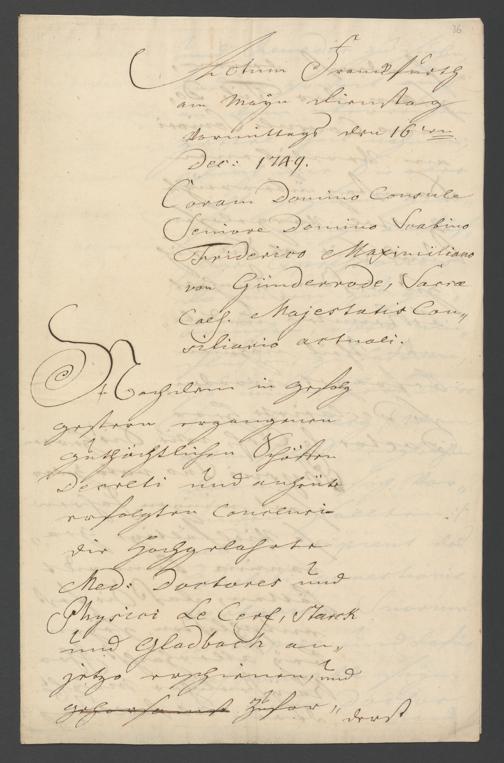 36
Actum Franckfurth
am Mayn Dienstag
Vormittags den 16ten
Dec: 1749.
Coram Domino Consule
Seniore Domino Scabino
Friderico Maximiliano
von Günderrode, Sacræ
Caes. Majestatis Con„
siliario actuali.
Nachdem in gefolg
gestern ergangenen
Schöffen
Decreti und anheute
erfolgten
die Hochgelahrte
Med: Doctores und
Physici Le Cerf, Starck
und Gladbach an„
jetzo erschienen, und
gehorsamst zufor„
derst